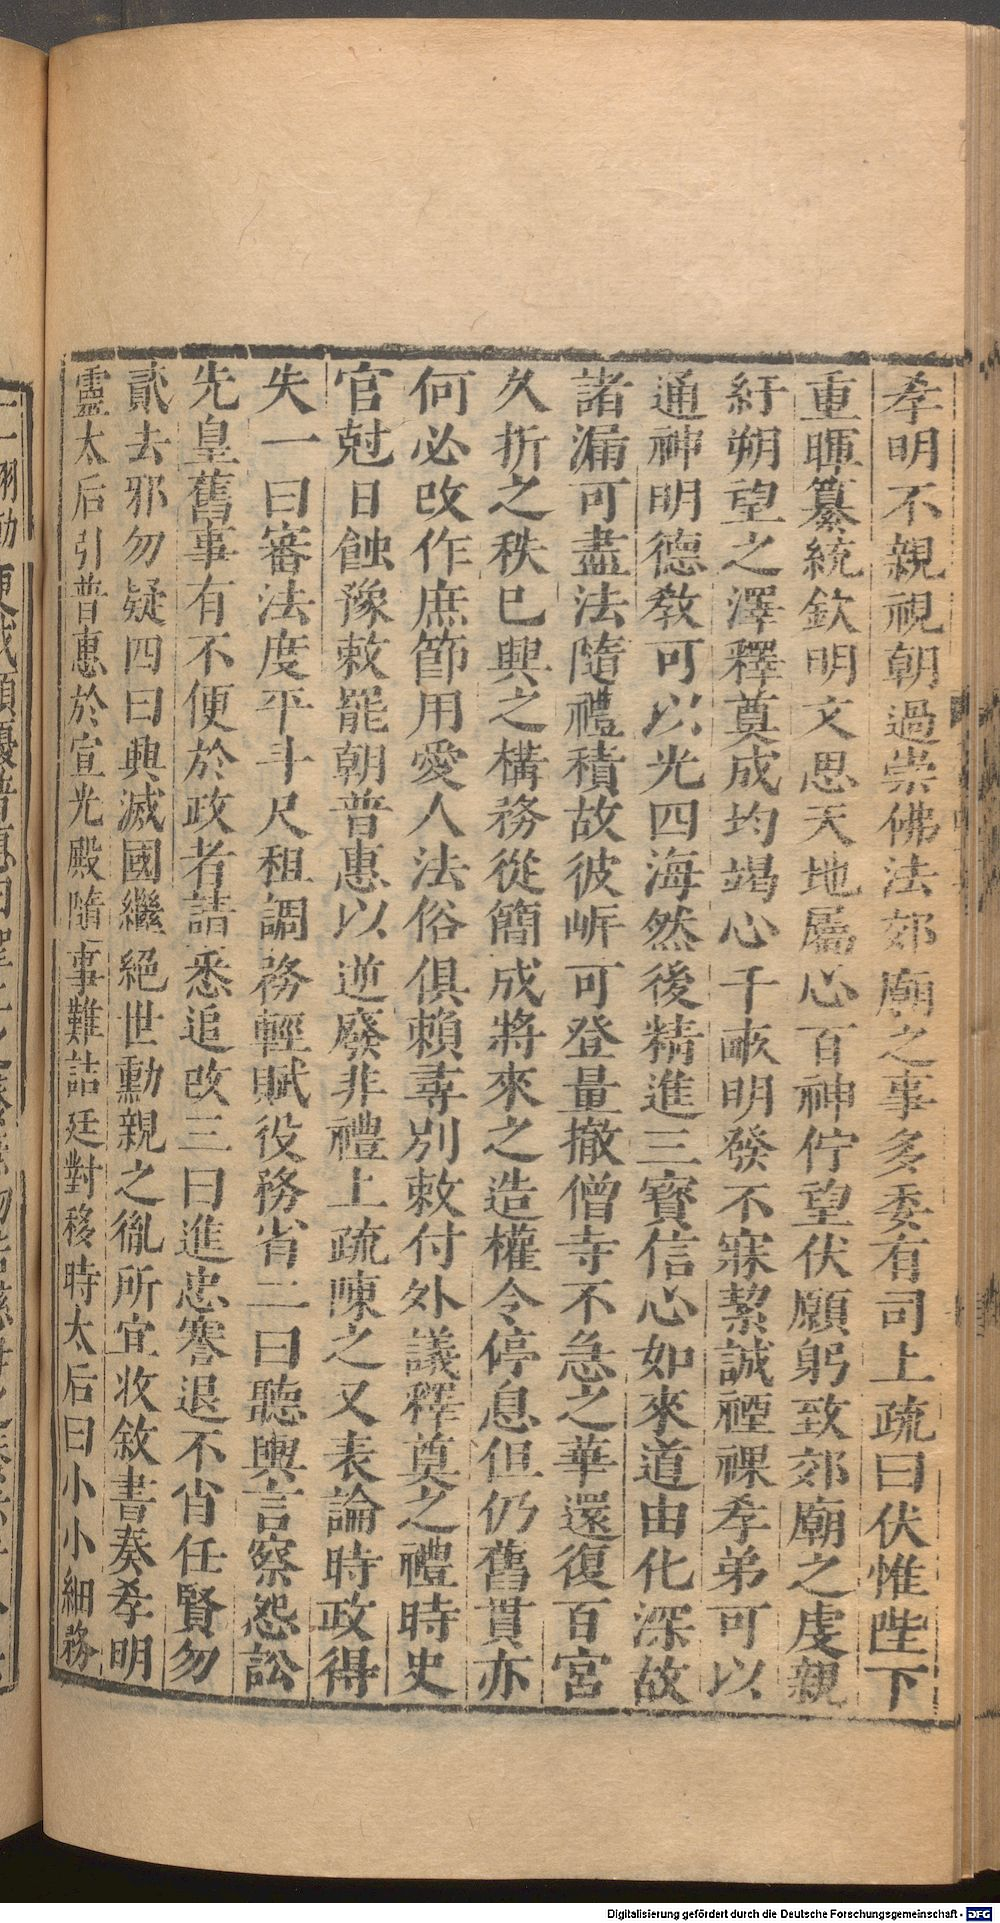 孝明不親視朝過崇佛法郊廟之事多委有司上疏曰伏惟陛下
重暉纂統欽明文思天地屬心百神佇望伏願躬致郊廟之虔親
紆朔望之澤釋奠成均竭心千畝明發不寐絜誠禋祼孝弟可以
通神明德敎可以光四海然後精進三寶信心如來道由化深故
諸漏可盡法隨禮積故彼㟁可登量撤僧寺不急之華還復百官
久折之秩巳興之構務從簡成將來之造權令停息但仍舊貫亦
何必改作庶節用愛人法俗俱賴尋別敕付外議釋奠之禮時史
官尅日蝕豫敕罷朝普惠以逆廢非禮上疏陳之又表論時政得
失一曰審法度平斗尺租調務輕賦役務省二曰聽輿言察怨訟
先皇舊事有不便於政者請悉追改三曰進忠謇退不肖任賢勿
貳去邪勿疑四曰興滅國繼絕世勳親之胤所宜收敘書奏孝明
靈太后引普惠於宣光殿隨事難詰廷對移時太后曰小小細務
Digitalisierung gefördert durch die Deutsche Forschungsgemeinschaft - DFG